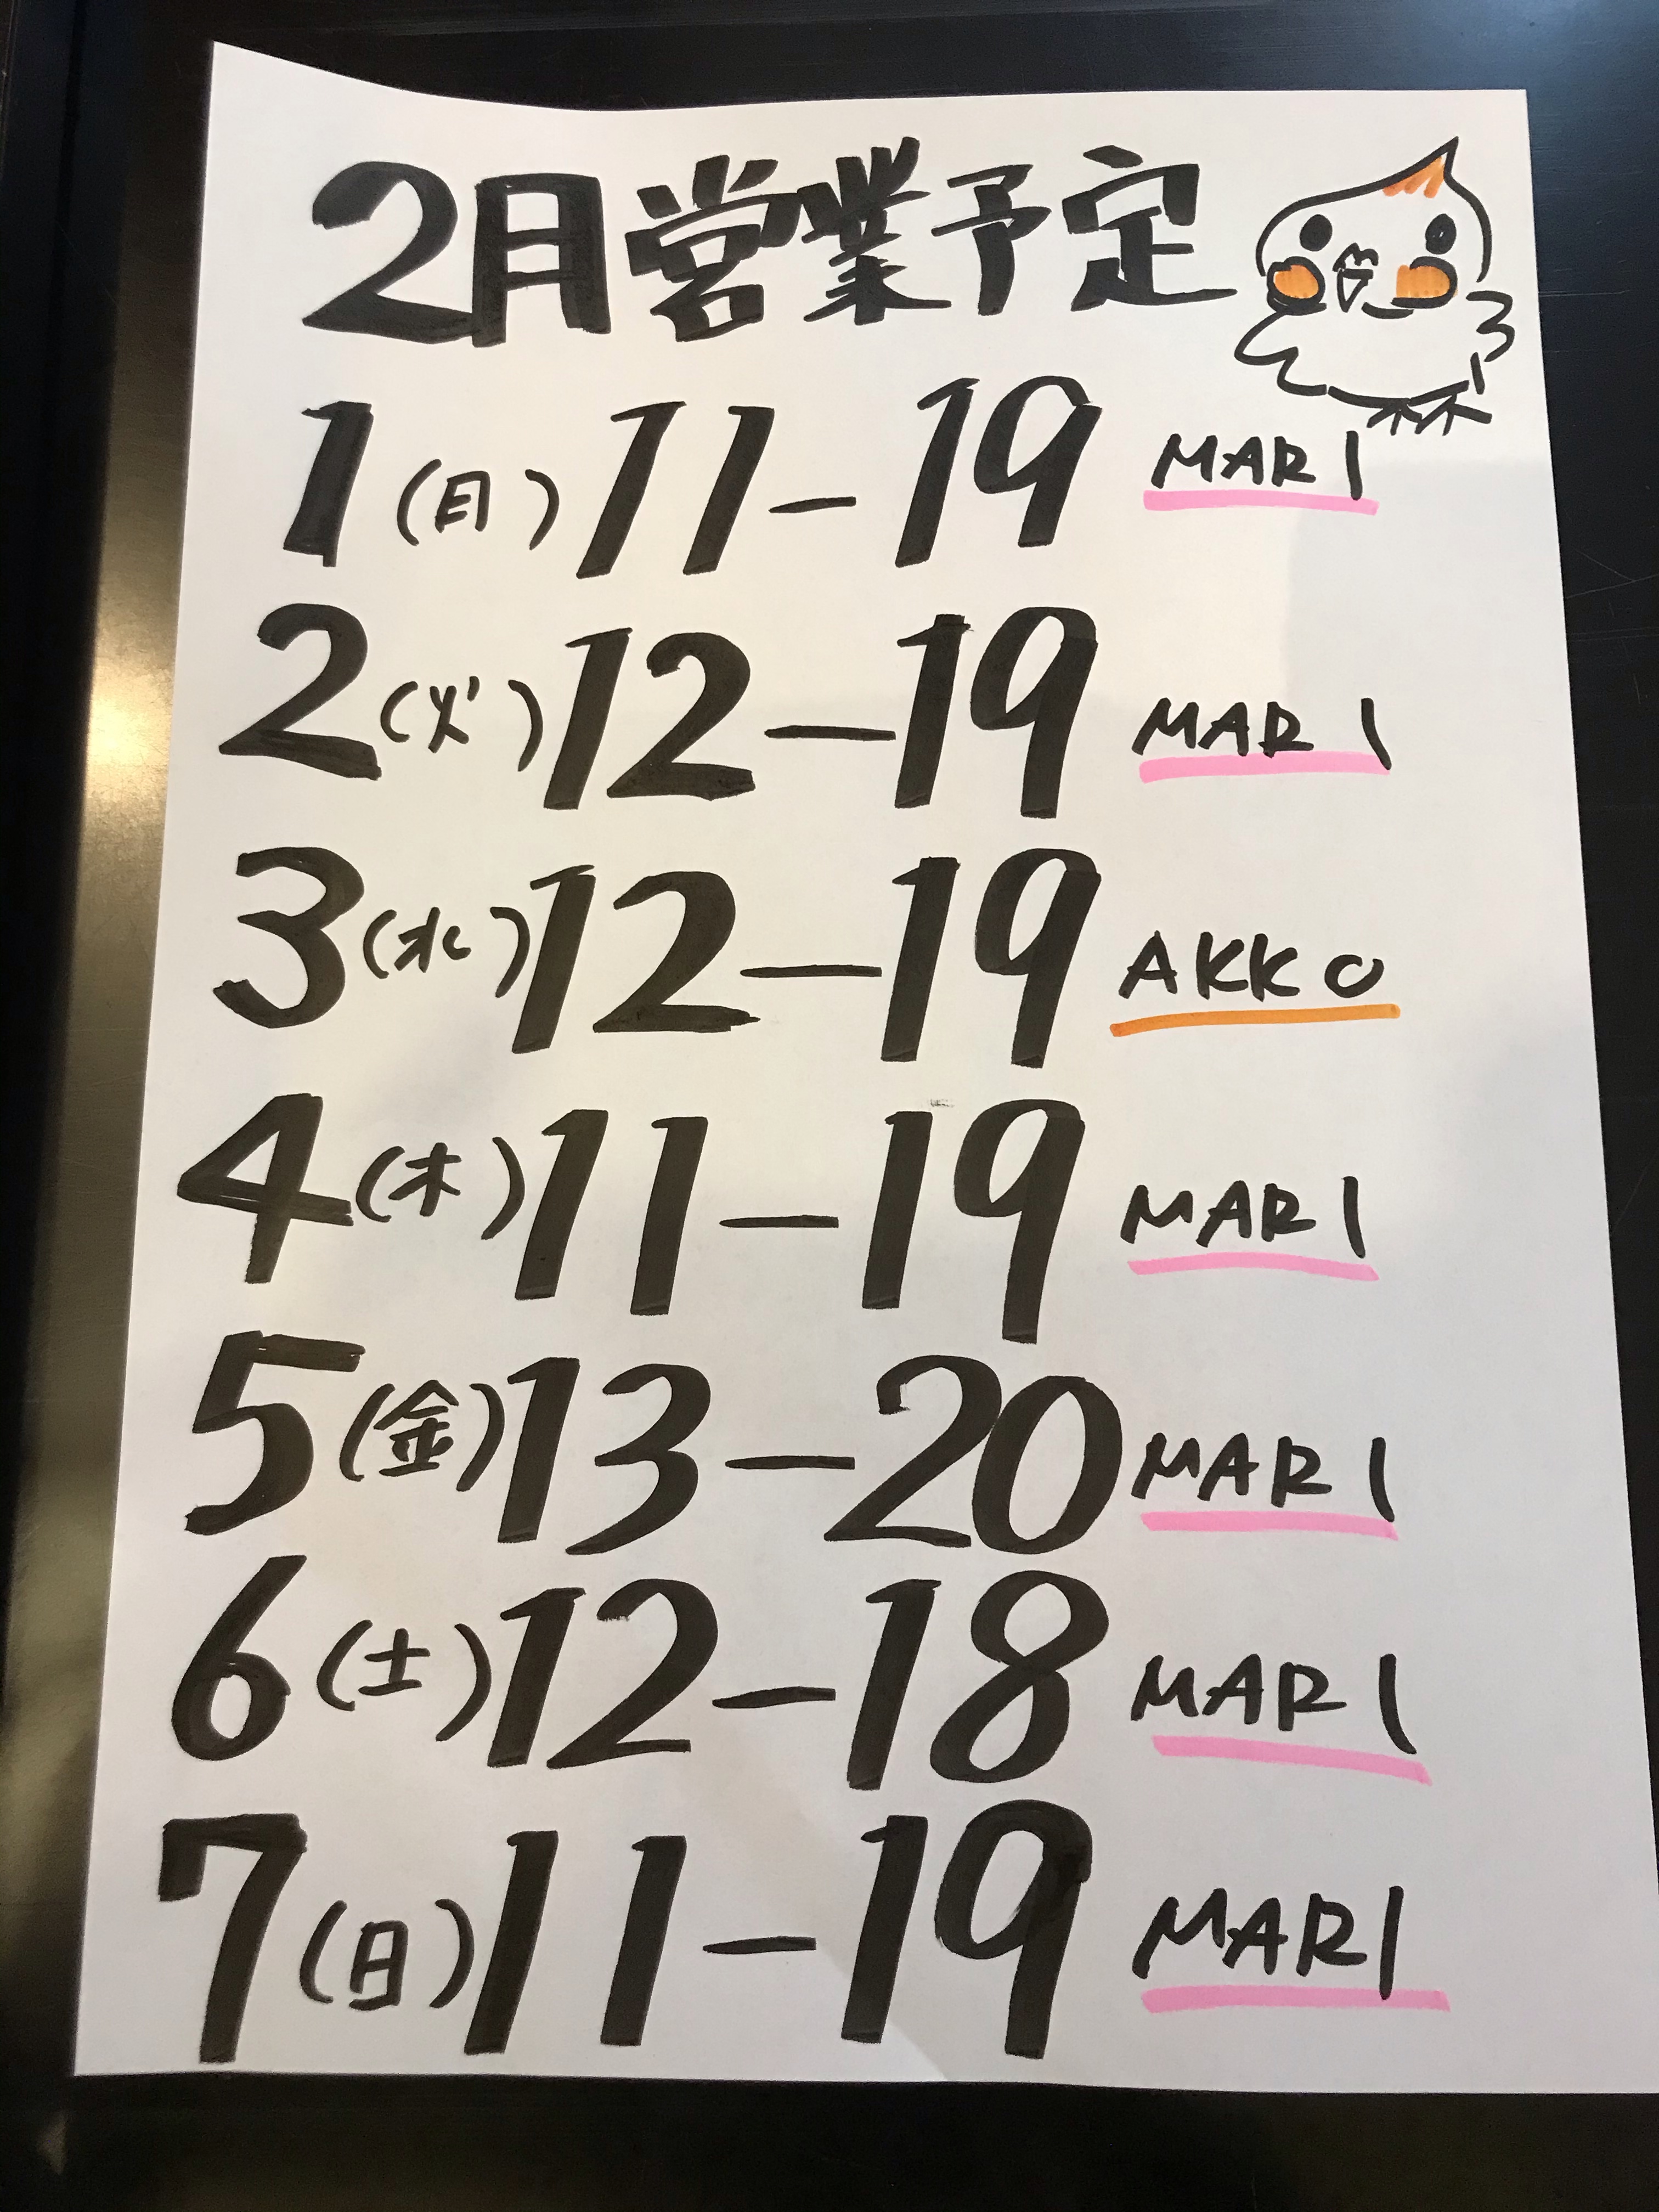 2月営業予定
1(月)11-19 MARI
2(火)12-19 MARI
3(水)12-19 AKKO
4(木)11-19 MARI
5(金)13-20 MARI
6(土)12-18 MARI
7(日)11-19 MARI